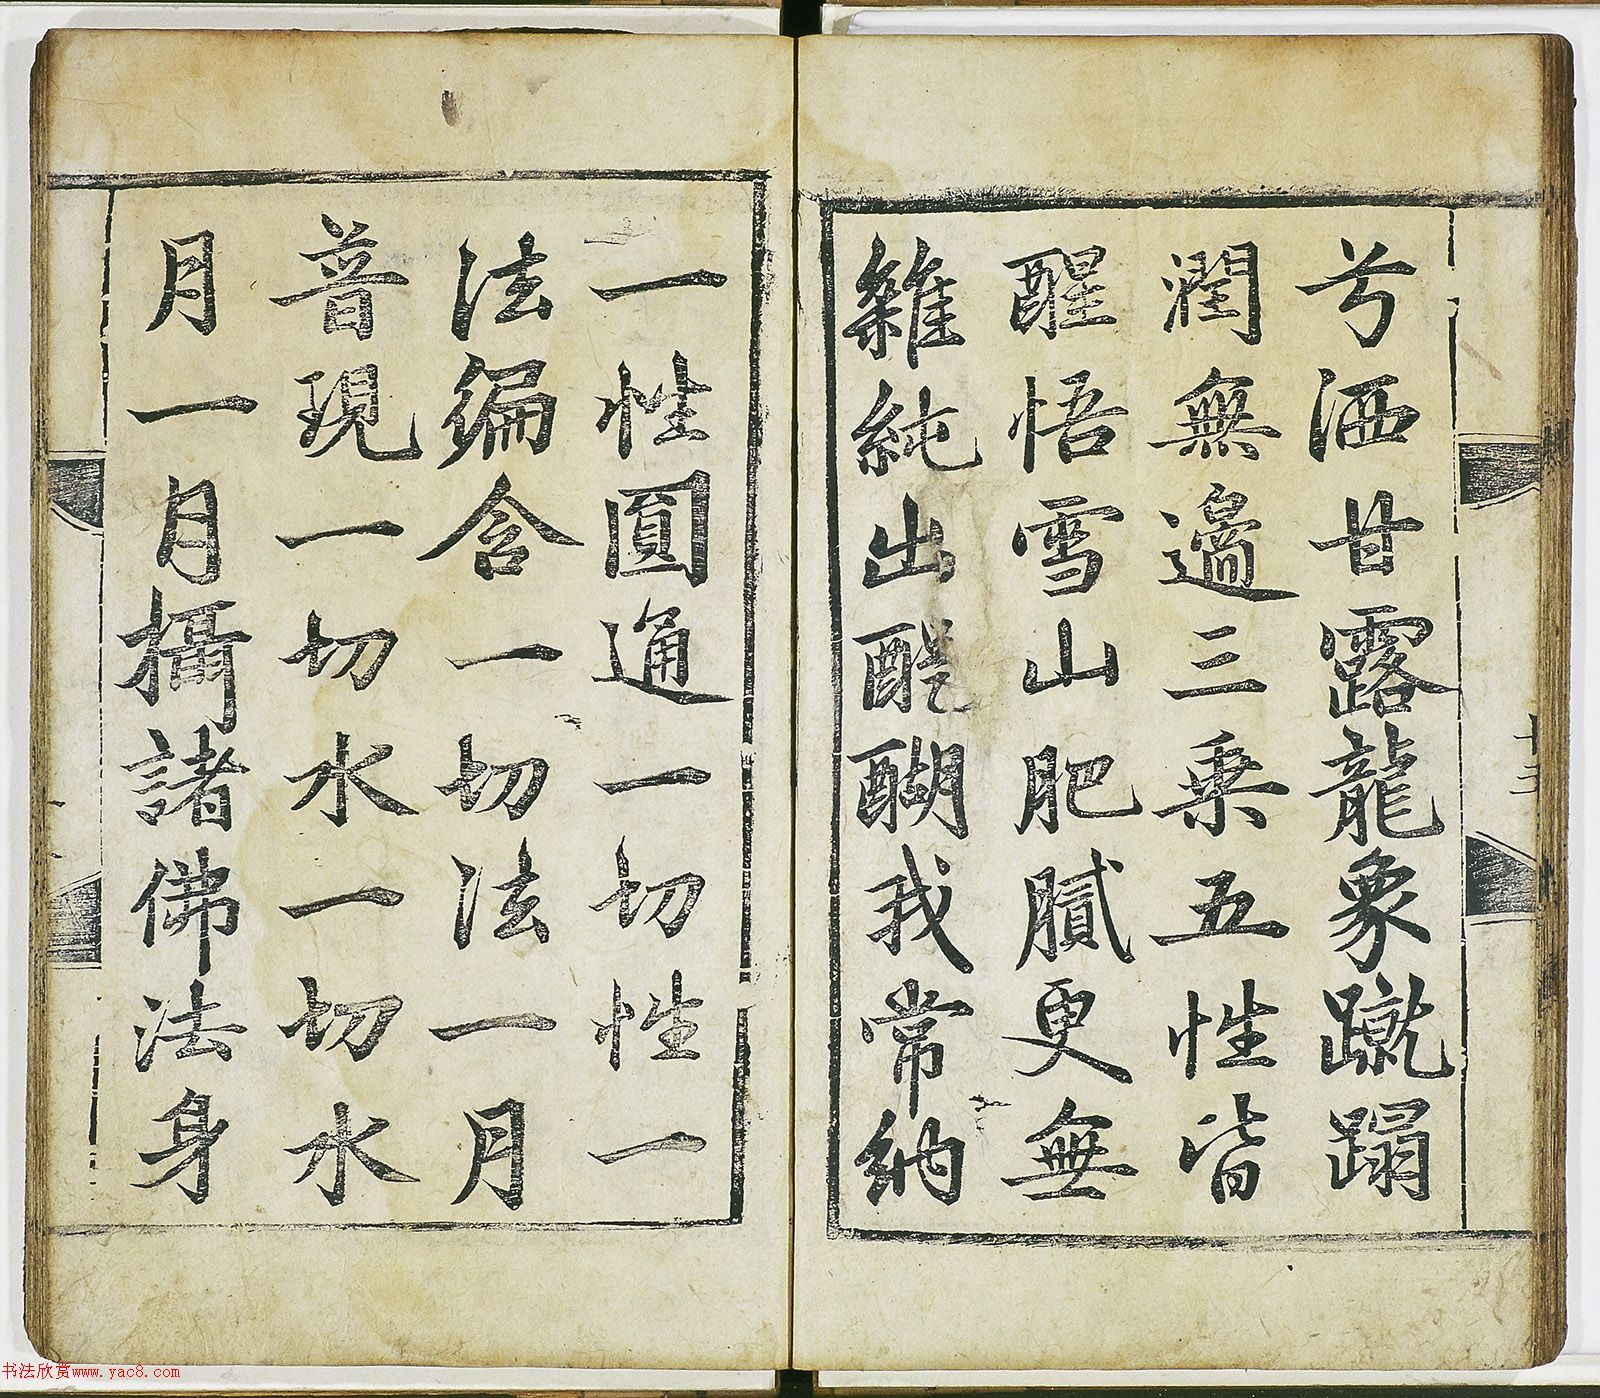 兮洒甘露龍象蹴蹋
潤無邊三乘五性皆
醒悟雪山肥膩更無
雜純出醍醐我常納
十三
一性圓通一切性一
法徧含一切法一月
普現一切水一切水
月一月攝諸佛法身
书法欣赏www.yac8.com